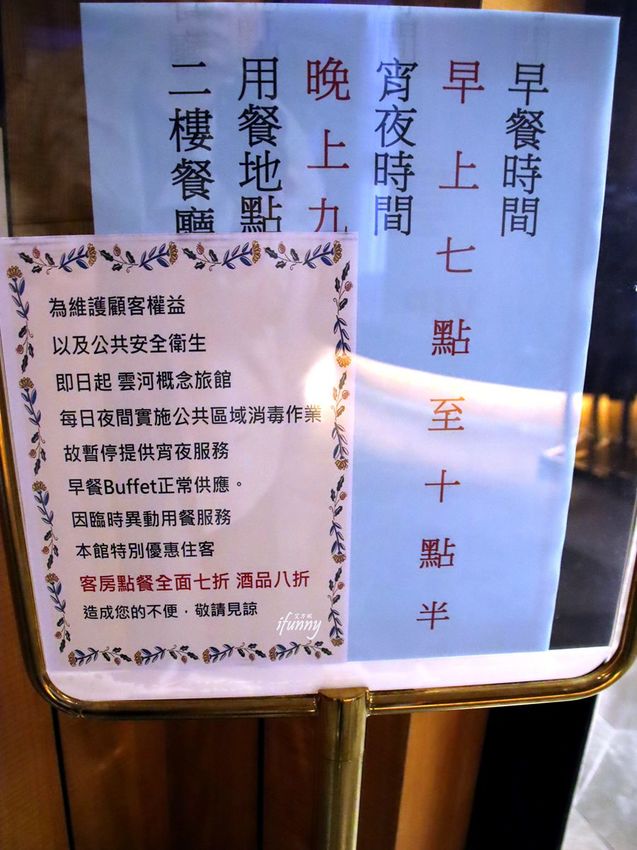 早餐時間
早上七點至十點半
宵夜時間
晚上九
用餐地點
二樓餐廳
為維護顧客權益
以及公共安全衛生
即日起 雲河概念旅館
每日夜間實施公共區域消毒作業
故暫停提供宵夜服務
早餐Buffet正常供應。
因臨時異動用餐服務
本館特別優惠住客
客房點餐全面七折 酒品八折
造成您的不便，敬請見諒
ifunny